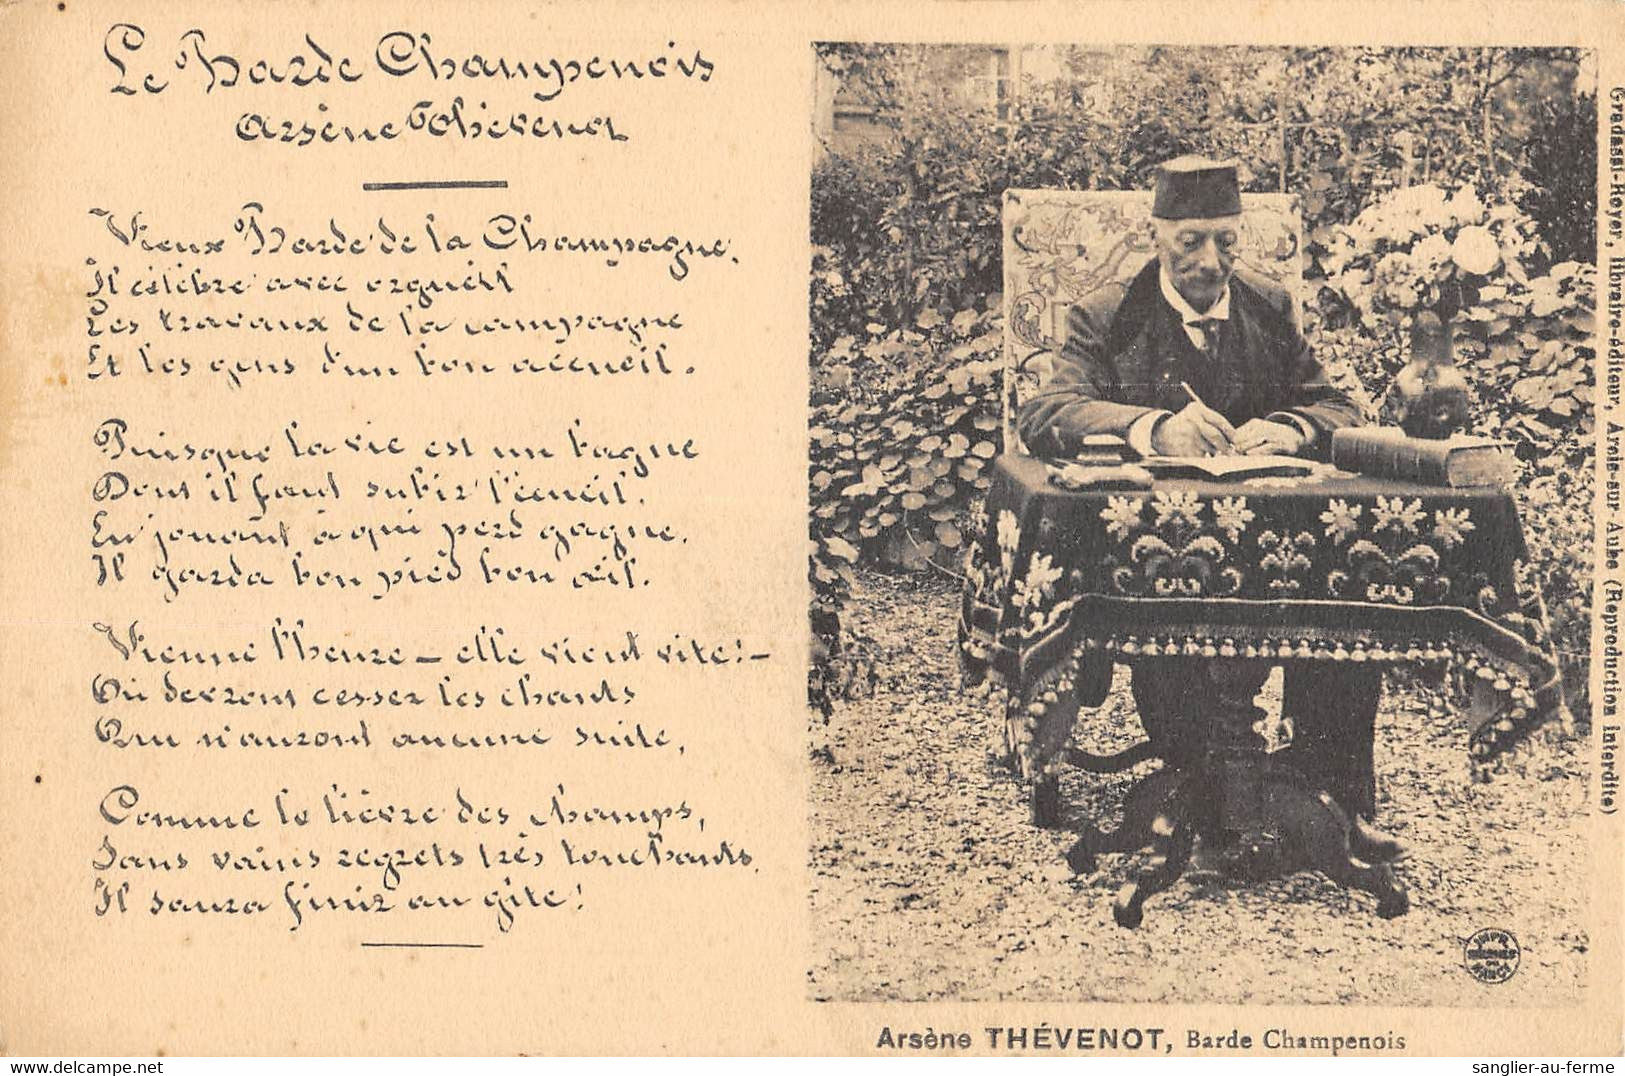 Le Barde Champenois
Arsène Thévenot
Vieux Barde de la Champagne,
Il célèbre avec orgueil
Les travaux de la campagne
Et les gens d'un bon accueil.
Puisque la vie est un bagne
Dont il faut subir l'écueil,
En jouant à qui perd gagne,
Il garda bon pied bon œil.
Vienne l'heure – elle vient vite! –
Où devront cesser les chants
Qui n'auront aucune suite,
Comme le lièvre des champs,
Sans vains regrets très touchants,
Il saura finir au gîte!
Arsène THÉVENOT, Barde Champenois
Gradassi-Royer, libraire-éditeur, Arcis-sur Aube (Reproduction interdite)
IMPR
RÉUNIES
DE
NANCY
delcampe.net
sanglier-au-ferme